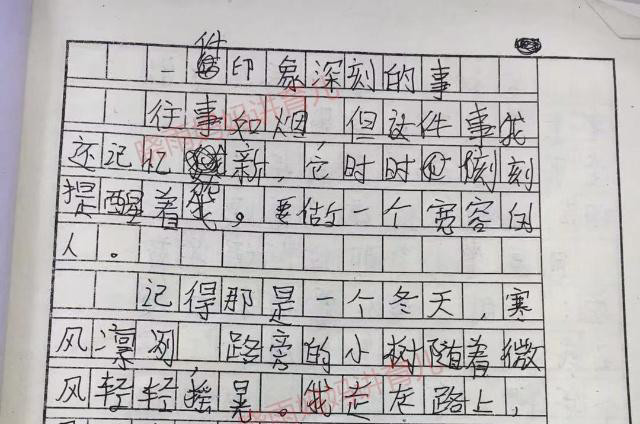 一件印象深刻的事
往事如烟,但这件事我
还记忆新,它时时刻刻
提醒着我,要做一个宽容的
人。
记得那是一个冬天,寒
风凛冽,路旁的小树随着微
风轻轻摇晃。我走在路上,
晓雨妈妈讲育儿
晓雨妈妈讲育儿